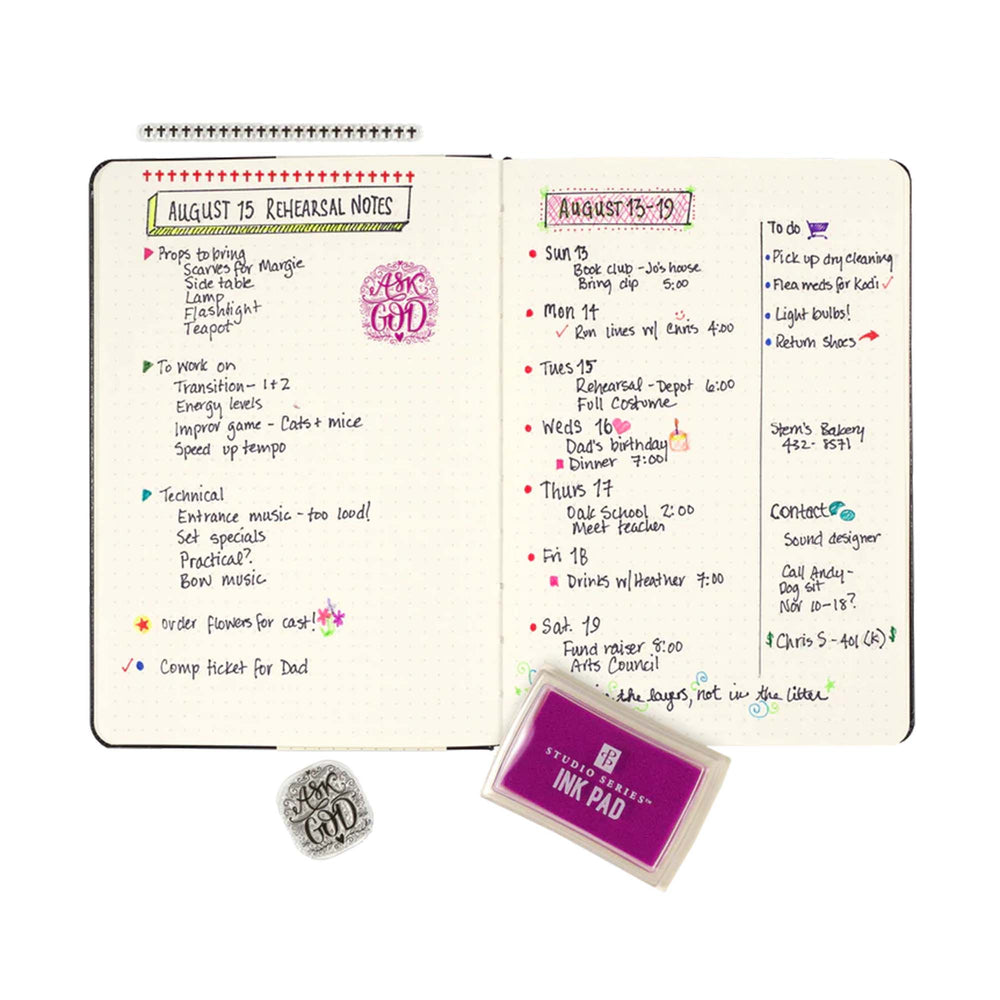 AUGUST 15 REHEARSAL NOTES
Props to bring
Scarves for Margie
Side table
Lamp
Flashlight
Teapot
ASK
GOD
To work on
Transition - 1+2
Energy levels
Improv game - Cats + mice
Speed up tempo
Technical
Entrance music - too loud!
Set specials
Practical?
Bow music
order flowers for cast!
Comp ticket for Dad
AUGUST 13-19
Sun 13
Book club - Jo's house
Bring dip 5:00
Mon 14
Run lines w/ Chris 4:00
Tues 15
Rehearsal - Depot 6:00
Full Costume
Weds 16
Dad's birthday
Dinner 7:00
Thurs 17
Oak School 2:00
Meet teacher
Fri 18
Drinks w/ Heather 7:00
Sat. 19
Fund raiser 8:00
Arts Council
in the layers, not in the litter
To do
Pick up dry cleaning
Flea meds for Kodi
Light bulbs!
Return shoes
Stern's Bakery
432-8571
Contact
Sound designer
Call Andy-
Dog sit
Nov 10-18?
$ Chris S - 401 (K) $
ASK
GOD
STUDIO SERIES™
INK PAD